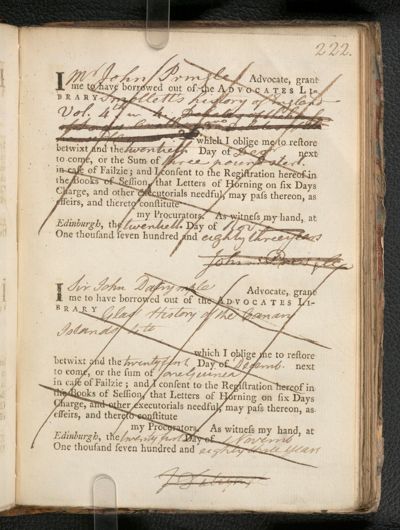 222.
I Mr John Pringle Advocate, grant
me to have borrowed out of the ADVOCATES LI-
BRARY Smollett's history of England
Vol. 4th in 4to
which I oblige me to restore
betwixt and the twentieth Day of Decr next
to come, or the Sum of three pound sterl.
in case of Failzie; and I consent to the Registration hereof in
the Books of Session, that Letters of Horning on six Days
Charge, and other executorials needful, may pass thereon, as
effeirs, and thereto constitute
my Procurators. As witness my hand, at
Edinburgh, the twentieth Day of Nov
One thousand seven hundred and eighty three years
John Pringle
I Sir John Dalrymple Advocate, grant
me to have borrowed out of the ADVOCATES LI-
BRARY Glas' History of the Canary
Islands 4to
which I oblige me to restore
betwixt and the twenty first Day of Decemb. next
to come, or the sum of one Guinea
in case of Failzie; and I consent to the Registration hereof in
the Books of Session, that Letters of Horning on six Days
Charge, and other executorials needful, may pass thereon, as
effeirs, and thereto constitute
my Procurators. As witness my hand, at
Edinburgh, the twenty first Day of Novemb
One thousand seven hundred and eighty three years